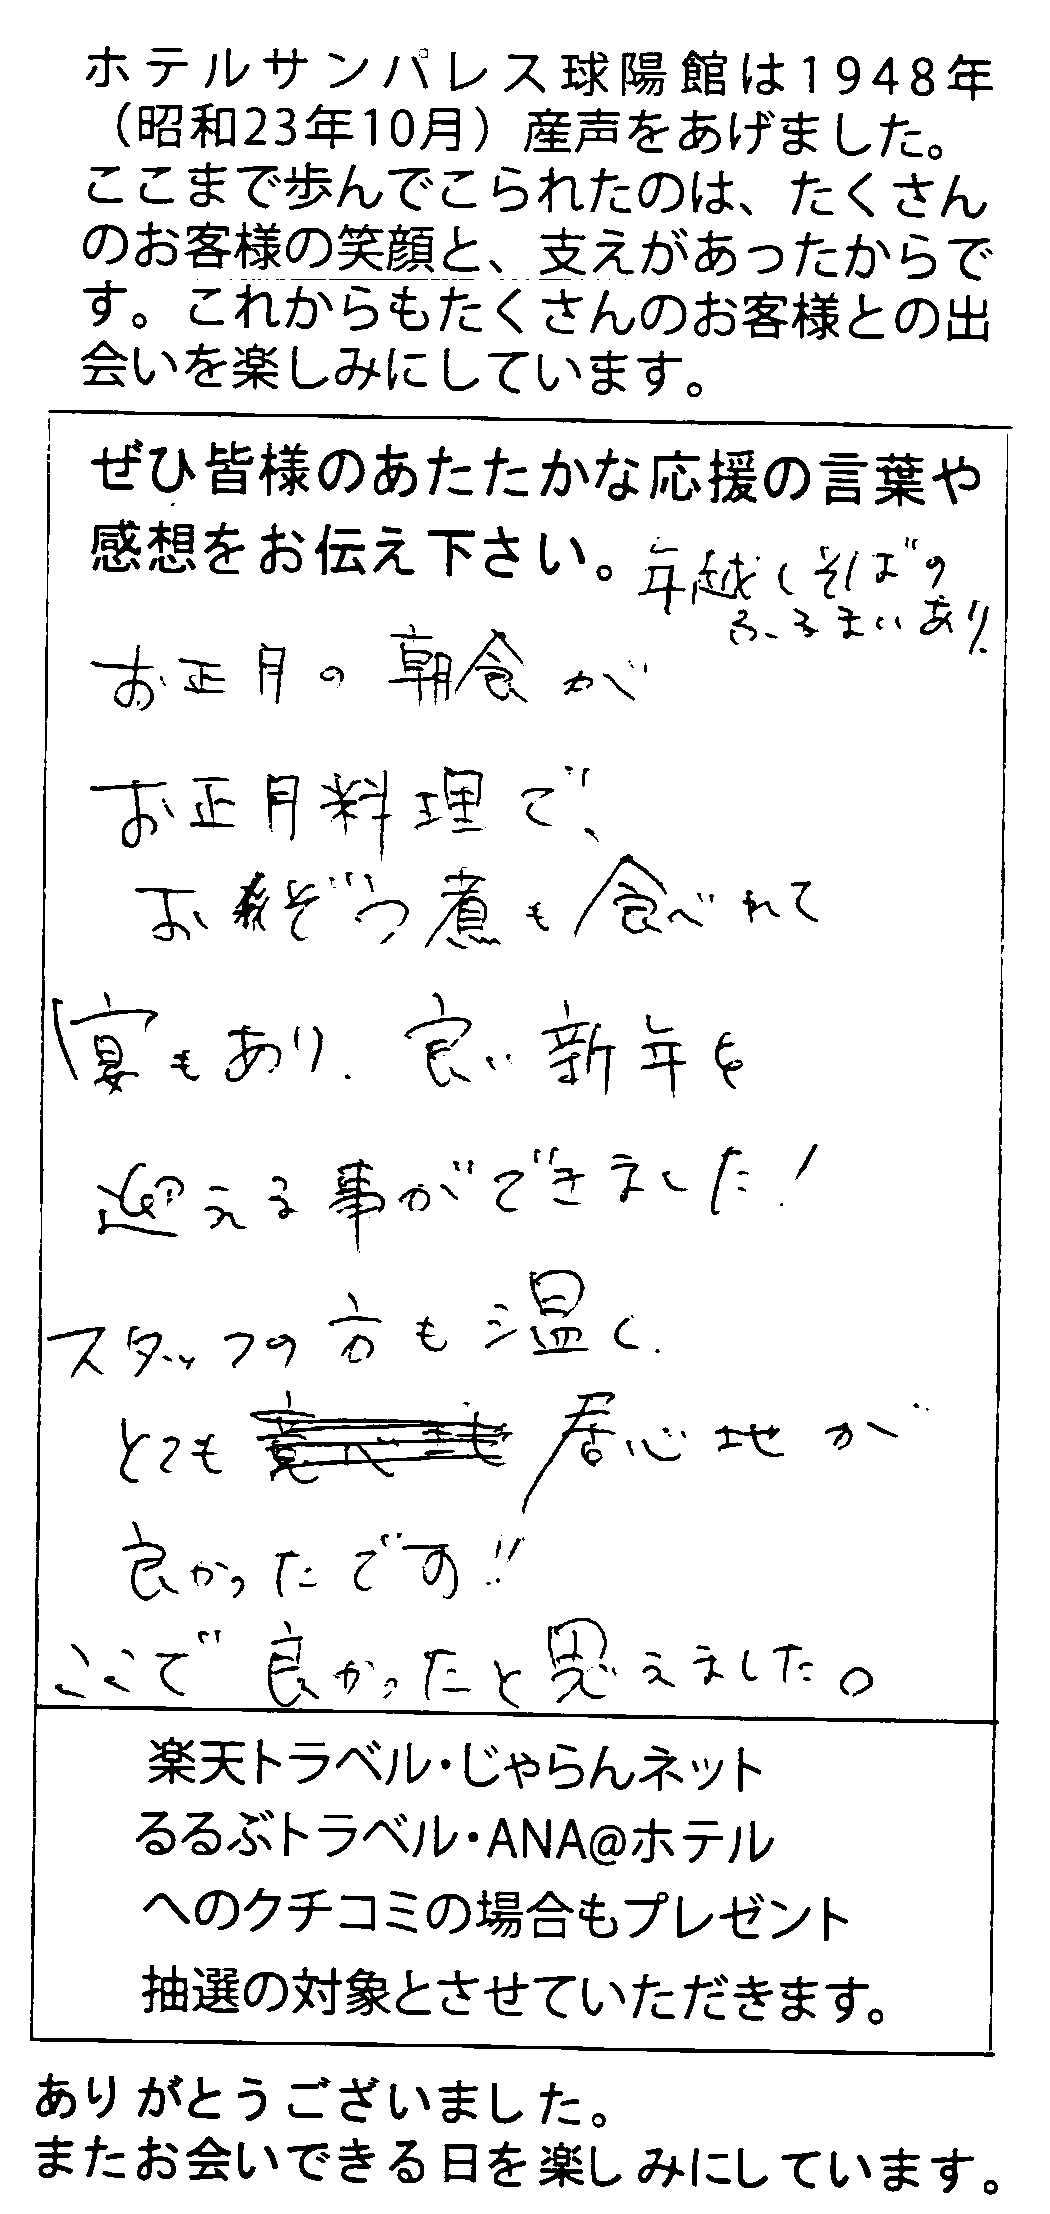 ホテルサンパレス球陽館は1948年
（昭和23年10月）産声をあげました。
ここまで歩んでこられたのは、たくさん
のお客様の笑顔と、支えがあったからで
す。これからもたくさんのお客様との出
会いを楽しみにしています。
ぜひ皆様のあたたかな応援の言葉や
感想をお伝え下さい。
年越しそばの
ふるまいあり
お正月の朝食が
お正月料理で、
おぞうつ煮も食べれて
宴もあり、良い新年を
迎える事ができました！
スタッフの方も温く、
とても居心地が
良かったです!!
ここで良かったと思えました。
楽天トラベル・じゃらんネット
るるぶトラベル・ANA@ホテル
へのクチコミの場合もプレゼント
抽選の対象とさせていただきます。
ありがとうございました。
またお会いできる日を楽しみにしています。